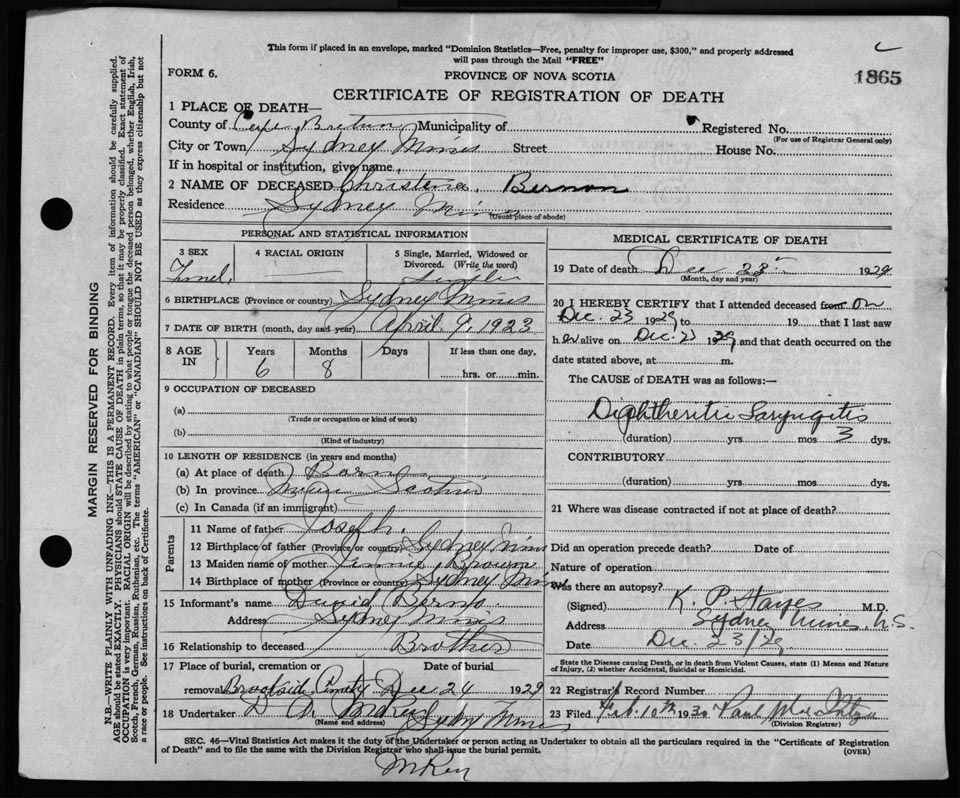 This form if placed in an envelope, marked "Dominion Statistics—Free, penalty for improper use, $300," and properly addressed
will pass through the Mail "FREE"
FORM 6.
PROVINCE OF NOVA SCOTIA
1865
CERTIFICATE OF REGISTRATION OF DEATH
1 PLACE OF DEATH—
County of Cape Breton Municipality of Registered No.
(For use of Registrar General only)
City or Town Sydney Mines Street House No.
If in hospital or institution, give name
2 NAME OF DECEASED Christena
Residence Sydney Mines
(Usual place of abode)
PERSONAL AND STATISTICAL INFORMATION
3 SEX 4 RACIAL ORIGIN 5 Single, Married, Widowed or
Divorced. (Write the word)
Single
6 BIRTHPLACE (Province or country) Sydney Mines
7 DATE OF BIRTH (month, day and year) April 9, 1923
8 AGE IN Years Months Days If less than one day,
6 8 hrs. or min.
9 OCCUPATION OF DECEASED
(a)
(Trade or occupation or kind of work)
(b)
(Kind of industry)
10 LENGTH OF RESIDENCE (in years and months)
(a) At place of death Born
(b) In province Nova Scotia
(c) In Canada (if an immigrant)
Parents
11 Name of father Joseph
12 Birthplace of father (Province or country) Sydney Mines
13 Maiden name of mother Brown
14 Birthplace of mother (Province or country) Sydney Mines
15 Informant's name David
Address Sydney Mines
16 Relationship to deceased Brother
17 Place of burial, cremation or Date of burial
removal Brookside Dec 24 1929
18 Undertaker Sydney Mines
(Name and address)
MEDICAL CERTIFICATE OF DEATH
19 Date of death Dec 23 1929
(Month, day and year)
20 I HEREBY CERTIFY that I attended deceased from on
Dec. 23 1929 to 19 that I last saw
her alive on Dec. 23 1929 and that death occurred on the
date stated above, at m.
The CAUSE of DEATH was as follows:—
Diphtheritic Laryngitis
(duration) yrs mos 3 dys.
CONTRIBUTORY
(duration) yrs. mos. dys.
21 Where was disease contracted if not at place of death?
Did an operation precede death? Date of
Nature of operation
Was there an autopsy?
(Signed) K. P. Hayes M.D.
Address Sydney Mines, N.S.
Date Dec. 23/29
State the Disease causing Death, or in death from Violent Causes, state (1) Means and Nature
of Injury, (2) whether Accidental, Suicidal or Homicidal.
22 Registrar's Record Number
23 Filed Feb. 10th 1930 Paul
(Division Registrar)
SEC. 46—Vital Statistics Act makes it the duty of the Undertaker or person acting as Undertaker to obtain all the particulars required in the "Certificate of Registration
of Death" and to file the same with the Division Registrar who shall issue the burial permit. (OVER)
MARGIN RESERVED FOR BINDING
N.B.—WRITE PLAINLY WITH UNFADING INK—THIS IS A PERMANENT RECORD. Every item of information should be carefully supplied.
AGE should be stated EXACTLY. PHYSICIANS should STATE CAUSE OF DEATH in plain terms, so that it may be properly classified. Exact statement of
OCCUPATION is very important. RACIAL ORIGIN will be described by stating to what people or tongue the deceased person belonged, whether English, Irish,
Scotch, French, German, Russian, Ruthenian, etc. The terms "AMERICAN" or "CANADIAN" SHOULD NOT BE USED as they express citizenship but not
a race or people. See instructions on back of Certificate.